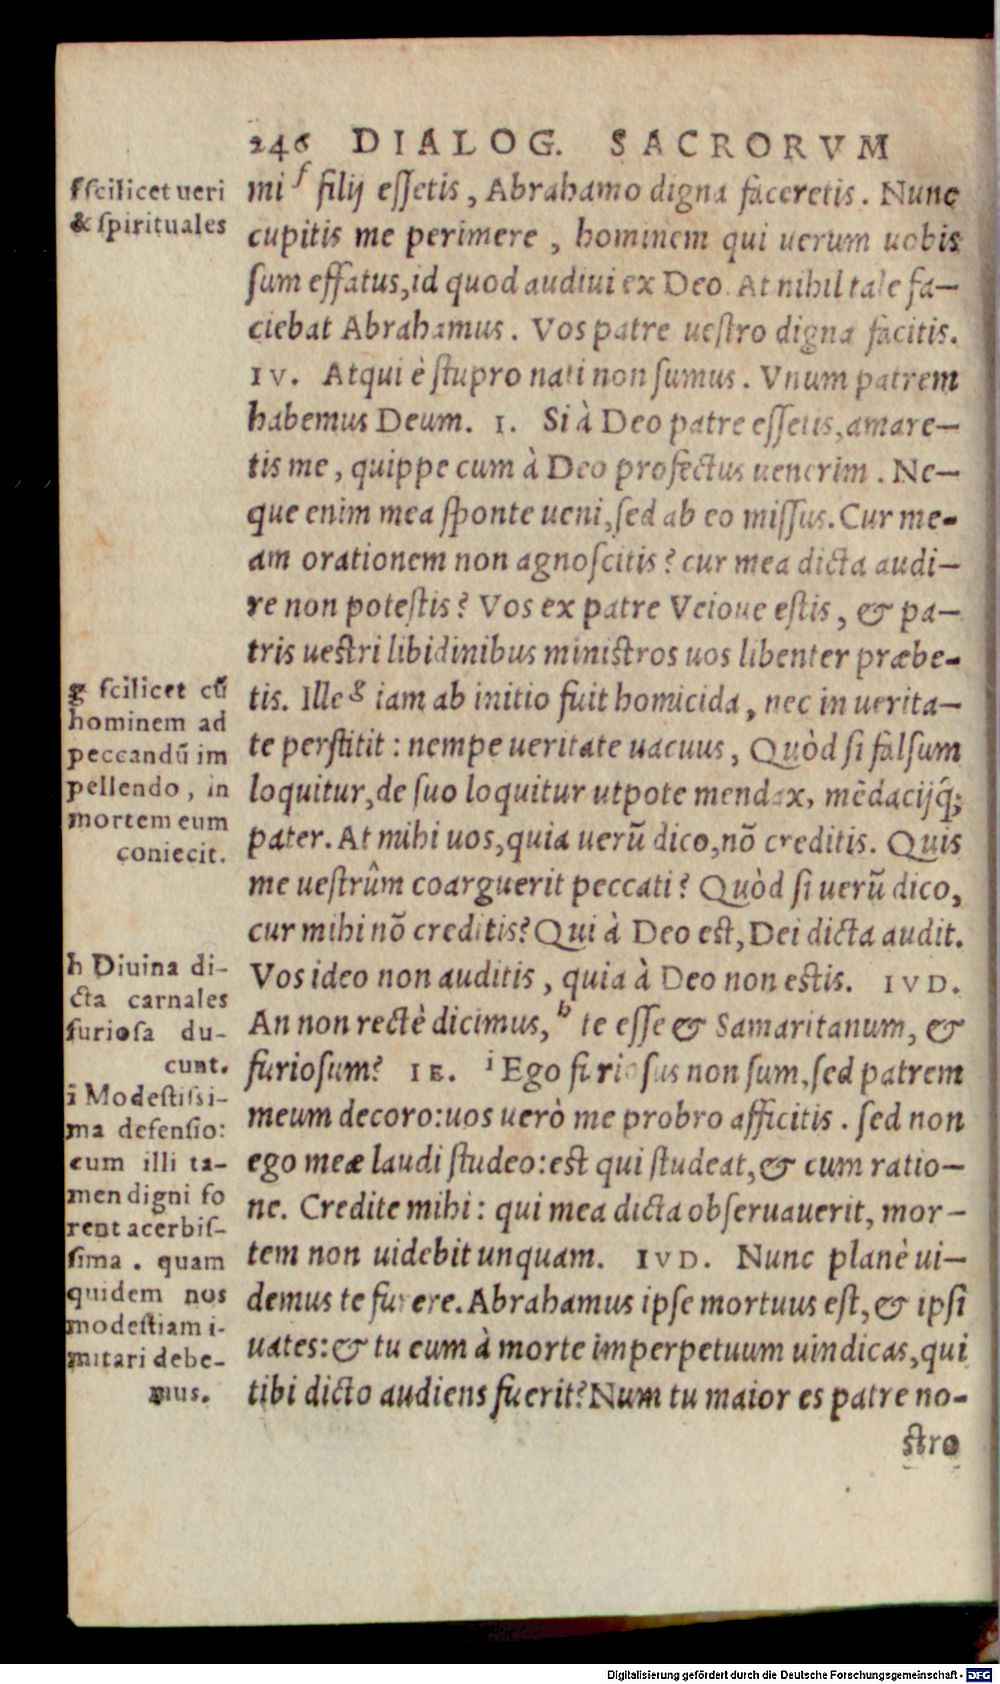 246 DIALOG. SACRORVM
f scilicet ueri
& spirituales
mi f filij essetis, Abrahamo digna faceretis. Nunc
cupitis me perimere, hominem qui uerum uobis
sum effatus, id quod audiui ex Deo. At nihil tale fa-
ciebat Abrahamus. Vos patre uestro digna facitis.
IV. Atqui è stupro nati non sumus. Vnum patrem
habemus Deum. I. Si à Deo patre essetis, amare-
tis me, quippe cum à Deo profectus uenerim. Ne-
que enim mea sponte ueni, sed ab eo missus. Cur me-
am orationem non agnoscitis? cur mea dicta audi-
re non potestis? Vos ex patre Veioue estis, & pa-
tris uestri libidinibus ministros uos libenter præbe-
tis. Ille g iam ab initio fuit homicida, nec in uerita-
te perstitit: nempe ueritate uacuus, Quòd si falsum
loquitur, de suo loquitur utpote mendax, mēdacijq́;
pater. At mihi uos, quia uerū dico, nō creditis. Quis
me uestrûm coarguerit peccati? Quòd si uerū dico,
cur mihi nō creditis? Qui à Deo est, Dei dicta audit.
Vos ideo non auditis, quia à Deo non estis. IVD.
An non rectè dicimus, h te esse & Samaritanum, &
furiosum? IE. i Ego furiosus non sum, sed patrem
meum decoro: uos uerò me probro afficitis. sed non
ego meæ laudi studeo: est qui studeat, & cum ratio-
ne. Credite mihi: qui mea dicta obseruauerit, mor-
tem non uidebit unquam. IVD. Nunc planè ui-
demus te furere. Abrahamus ipse mortuus est, & ipsi
uates: & tu eum à morte imperpetuum uindicas, qui
tibi dicto audiens fuerit? Num tu maior es patre no-
stro
g scilicet cū
hominem ad
peccandū im
pellendo, in
mortem eum
coniecit.
h Diuina di-
cta carnales
furiosa du-
cunt.
i Modestissi-
ma defensio:
cum illi ta-
men digni fo
rent acerbis-
sima. quam
quidem nos
modestiam i-
mitari debe-
mus.
Digitalisierung gefördert durch die Deutsche Forschungsgemeinschaft - DFG